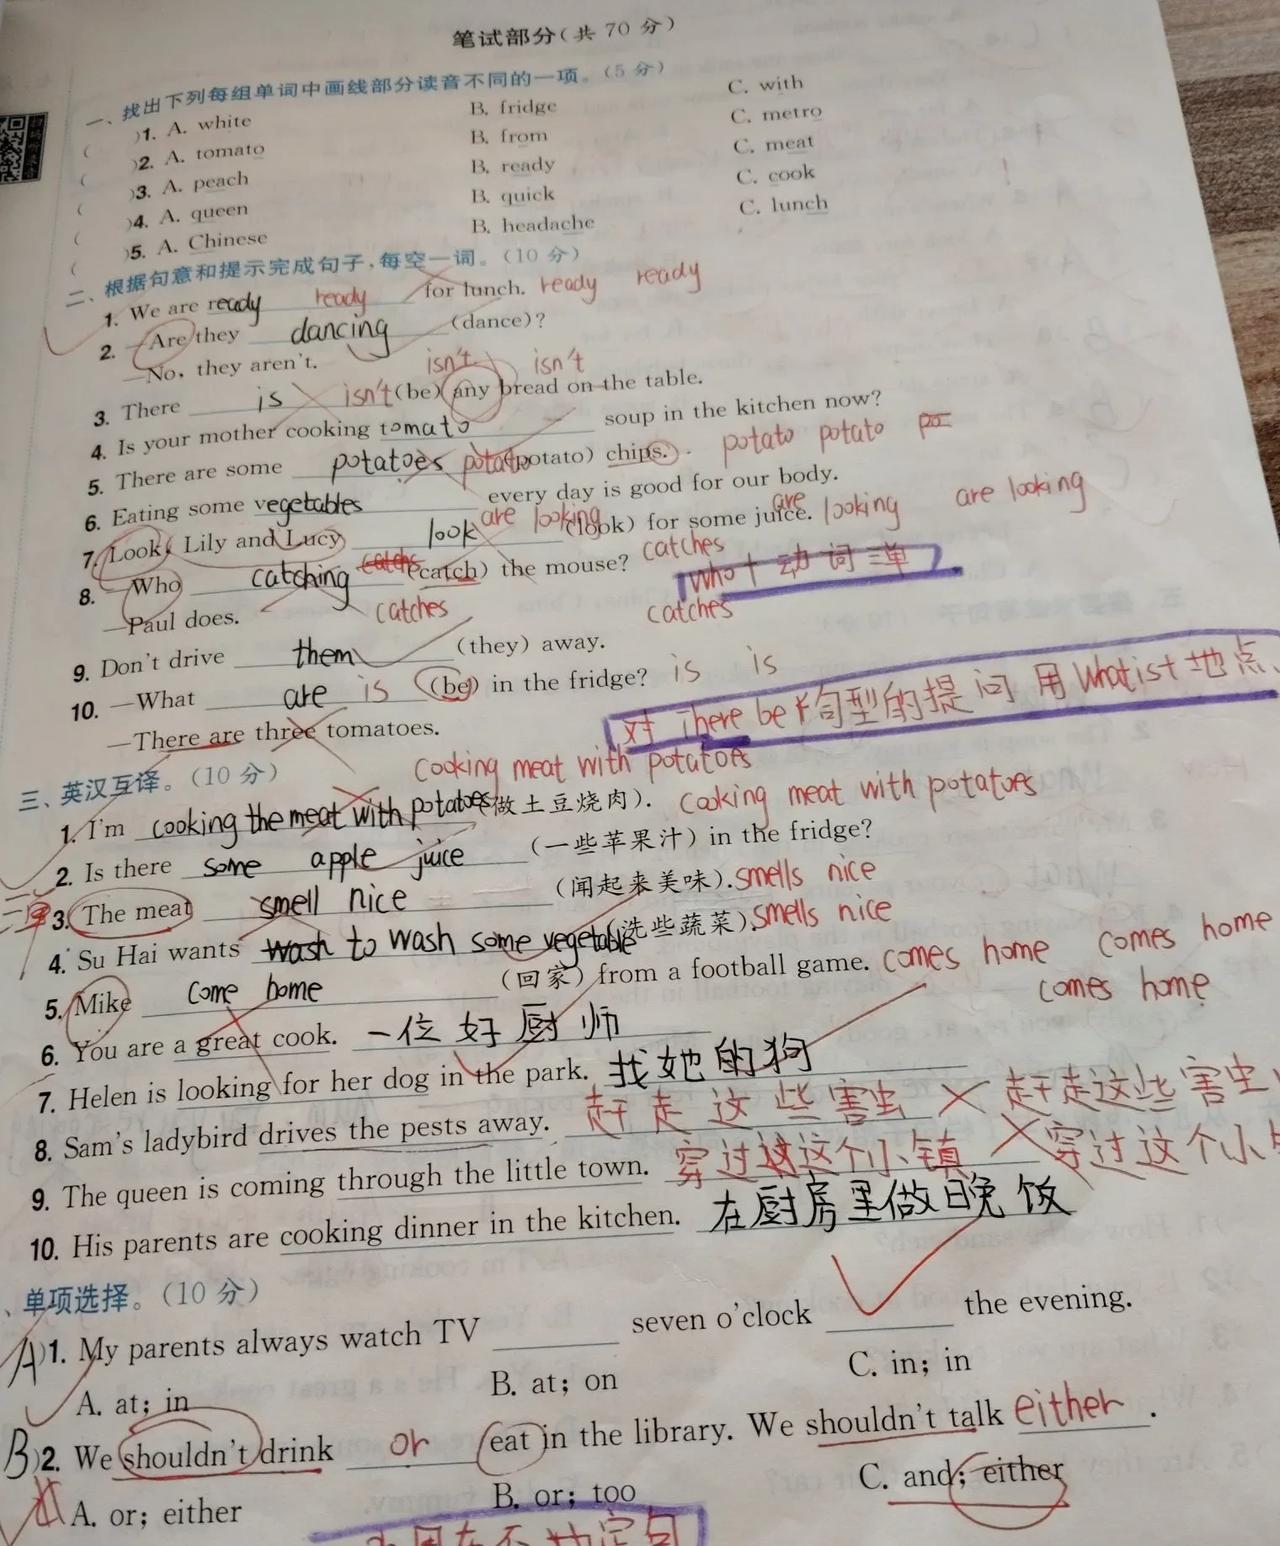 笔试部分(共 70 分)
一、找出下列每组单词中画线部分读音不同的一项。(5 分)
( )1. A. white B. fridge C. with
( )2. A. tomato B. from C. metro
( )3. A. peach B. ready C. meat
( )4. A. queen B. quick C. cook
( )5. A. Chinese B. headache C. lunch
二、根据句意和提示完成句子,每空一词。(10 分)
1. We are ready ready for lunch. ready ready
2. —Are they dancing (dance)?
—No, they aren't. isn't isn't
3. There is isn't (be) any bread on the table.
4. Is your mother cooking tomato soup in the kitchen now?
5. There are some potatoes potato (potato) chips. potato potato
6. Eating some vegetables every day is good for our body.
7. Look! Lily and Lucy look are looking (look) for some juice. are looking are looking
8. —Who catching catchs (catch) the mouse? catches who+动词三单
—Paul does. catches catches
9. Don't drive them (they) away.
10. —What are is (be) in the fridge? is is
—There are three tomatoes. 对 There be 句型的提问 用 What is+地点
三、英汉互译。(10 分) cooking meat with potatoes
1. I'm cooking the meat with potatoes (做土豆烧肉). cooking meat with potatoes
2. Is there some apple juice (一些苹果汁) in the fridge?
三单 3. The meat smell nice (闻起来美味). smells nice
4. Su Hai wants wash to wash some vegetable (洗些蔬菜). smells nice
5. Mike come home (回家) from a football game. comes home comes home
comes home
6. You are a great cook. 一位好厨师
7. Helen is looking for her dog in the park. 找她的狗
8. Sam's ladybird drives the pests away. 赶走这些害虫 赶走这些害虫
9. The queen is coming through the little town. 穿过这这个小镇 穿过这个小
10. His parents are cooking dinner in the kitchen. 在厨房里做晚饭
、单项选择。(10 分)
A)1. My parents always watch TV seven o'clock the evening.
A. at; in B. at; on C. in; in
B)2. We shouldn't drink or eat in the library. We shouldn't talk either.
A. or; either B. or; too C. and; either